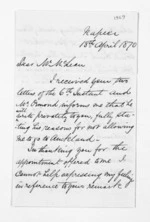 Napier
18th April 1870
Dear Mr McLean
I received your two
letters of the 6th Instant and
Mr Ormond informs me that he
will write privately to you, fully sta-
ting his reasons for not allowing
me to go to Auckland.
In thanking you for the
appointment offered to me I
cannot help expressing my
in reference to your remark